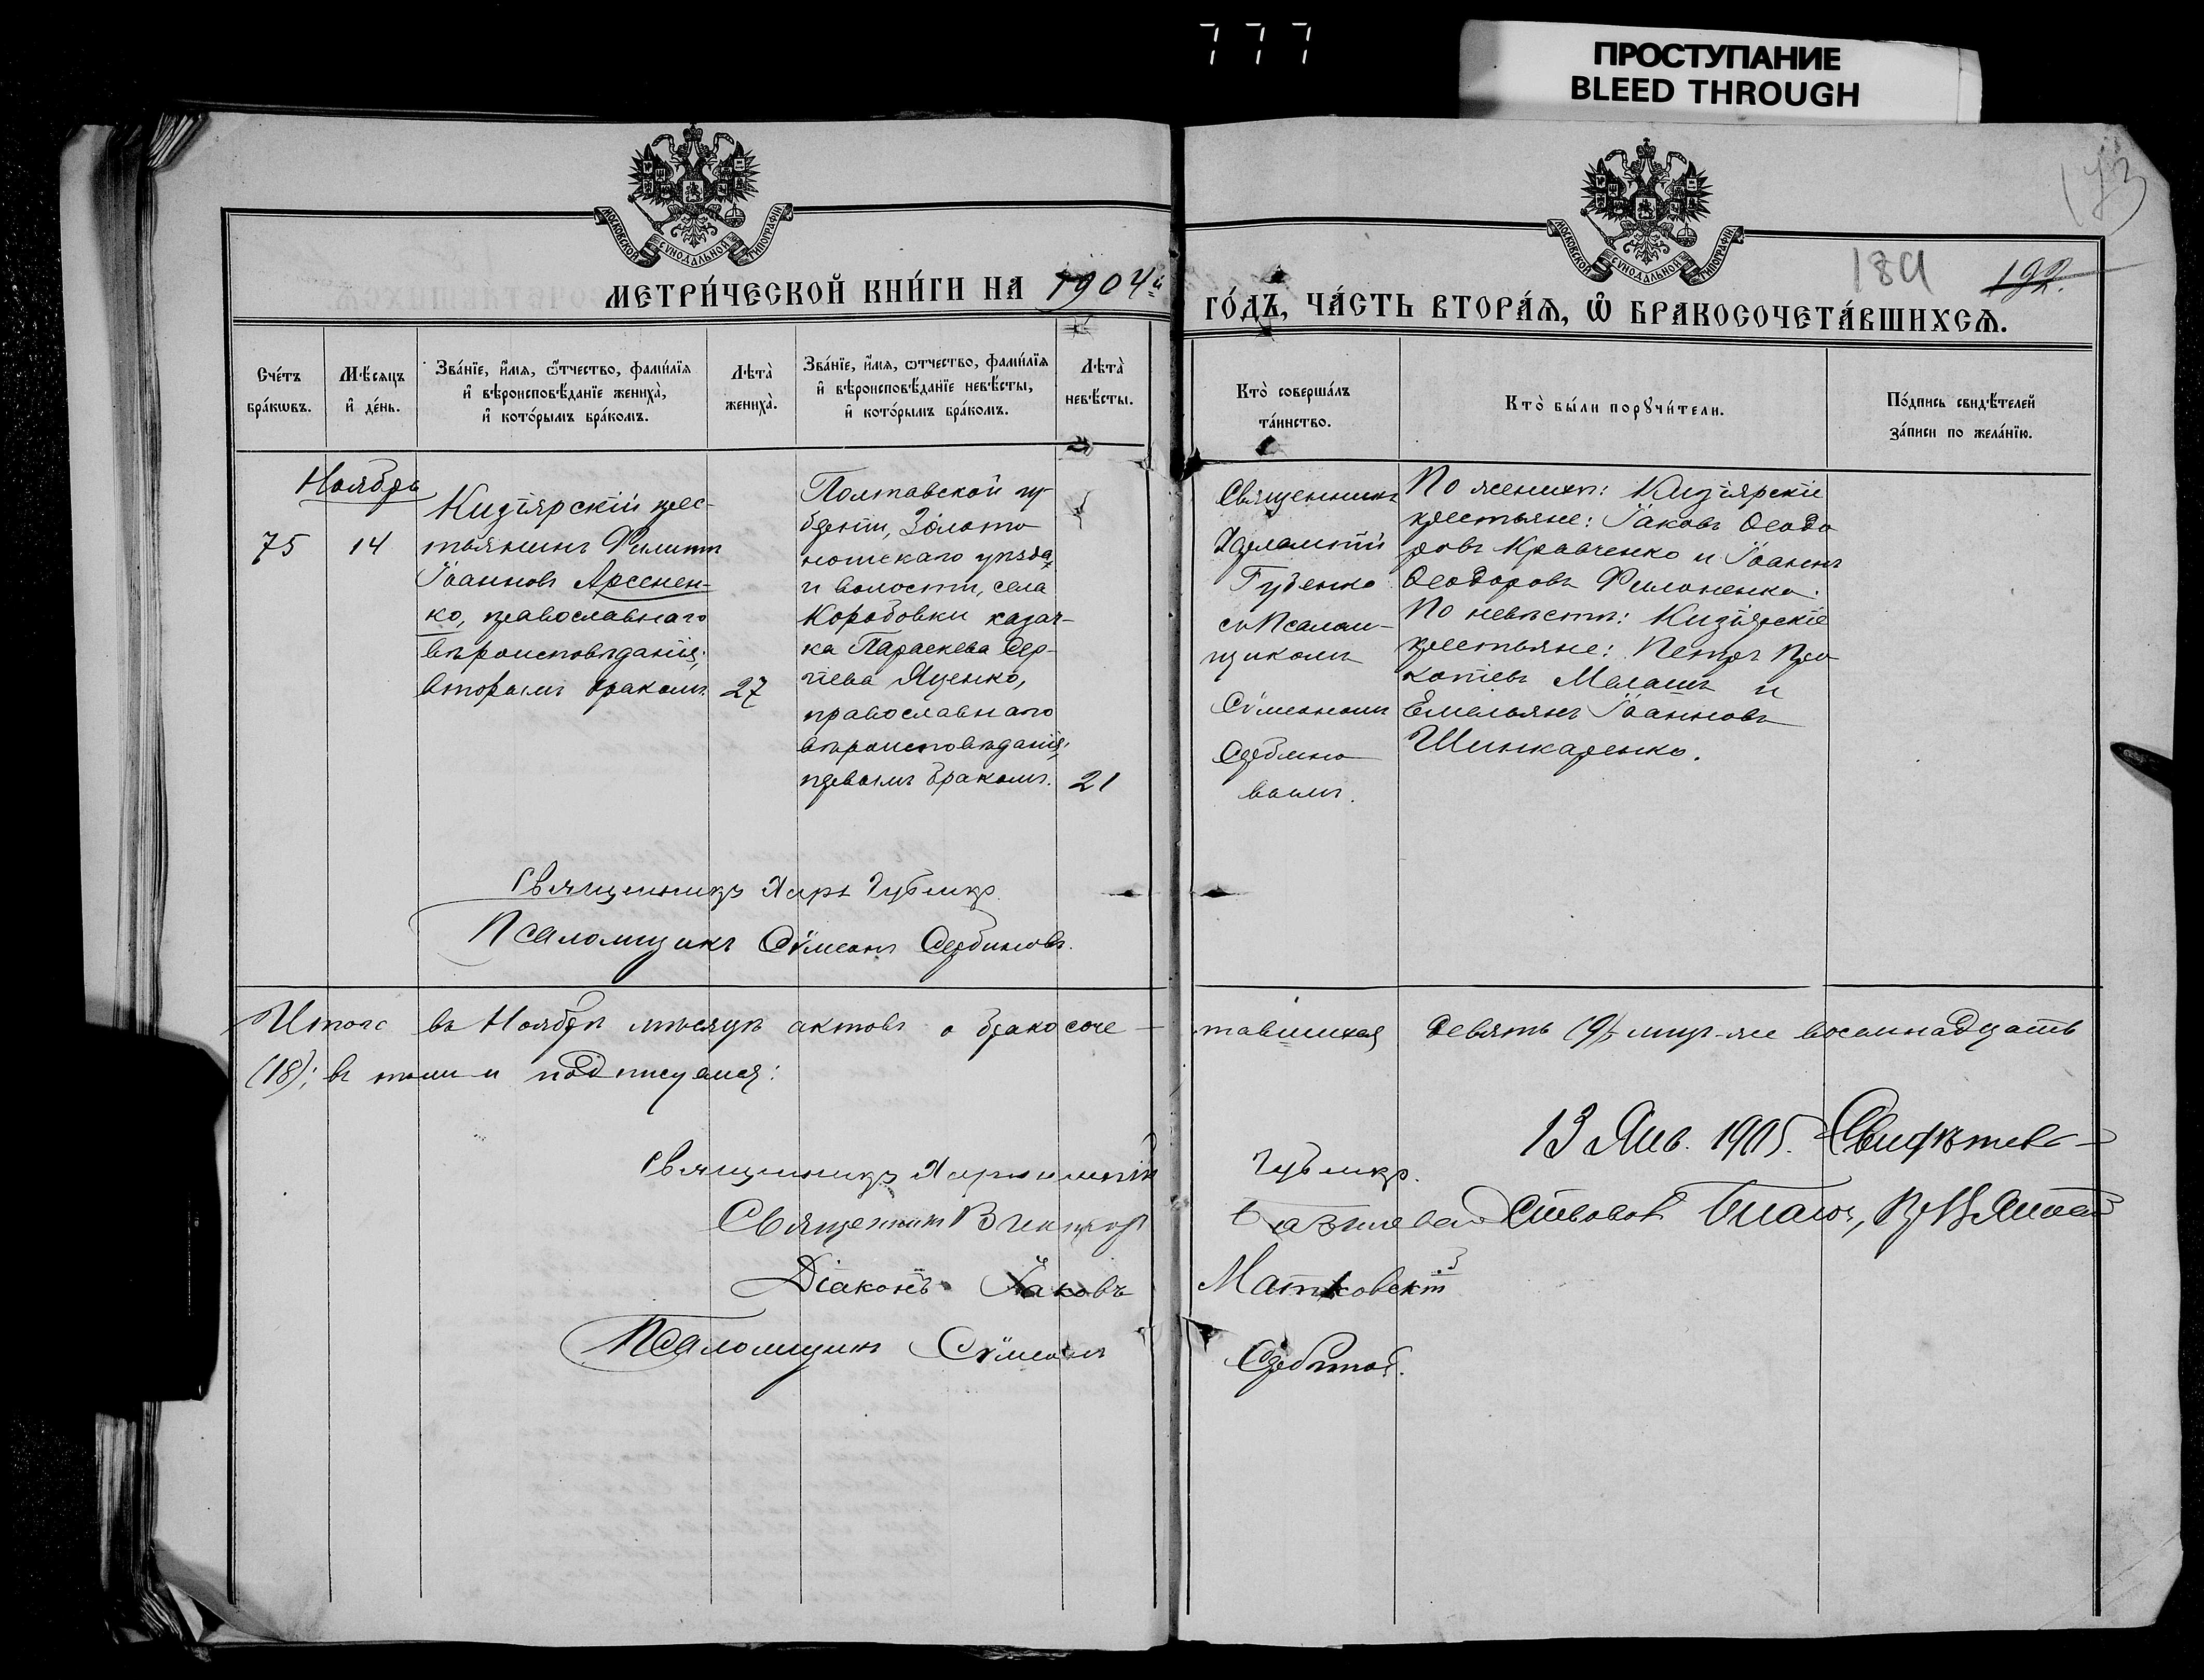 777
ПРОСТУПАНИЕ
BLEED THROUGH
МОСКОВСКОЙ СѴНОДАЛЬНОЙ ТИПОГРАФІИ
МОСКОВСКОЙ СѴНОДАЛЬНОЙ ТИПОГРАФІИ
189
192.
МЕТРИ́ЧЕСКОЙ КНИ́ГИ НА 1904й
ГО́ДЪ, ЧА́СТЬ ВТОРА́Ѧ, Ѽ БРАКОСОЧЕТА́ВШИХСѦ.
Сче́тъ
бра́кѡвъ.
Мѣ́сяцъ
и҆ де́нь.
Зва́нїе, и҆́мя, ѻ҆́тчество, фами́лїя
и҆ вѣроисповѣ́данїе жениха̀,
и҆ кото́рымъ бра́комъ.
Лѣта̀
жениха̀.
Зва́нїе, и҆́мя, ѻтчество, фами́лїя
и҆ вѣроисповѣ́данїе невѣ́сты,
и҆ кото́рымъ бра́комъ.
Лѣта̀
невѣ́сты.
Кто̀ соверша́лъ
та́инство.
Кто̀ бы́ли порꙋчи́тели.
По́дпись свидѣ́телей
за́писи по жела́нїю.
Ноябрь
75
14
Кизіярскій крес-
тьянинъ Филиппъ
Іоанновъ Арсенен-
ко, православнаго
вѣроисповѣданія;
вторымъ бракомъ
27
Полтавской гу-
берніи, Золото
ношскаго уѣзда
и волости, села
Коробовки казач-
ка Параскева Сер-
гіева Яценко,
православнаго
вѣроисповѣданія;
первымъ бракомъ.
21
Священникъ
Губенко
съ Псалом-
щикомъ
Сѵмеономъ
Сербино
вымъ.
По женихѣ: Кизіярскіе
крестьяне: Іаковъ Ѳеодо
ровъ Кравченко и Іоаннъ
Ѳеодоровъ Филоненко.
По невѣстѣ: Кизіярскіе
крестьяне: Петръ Про
копіевъ Малашъ и
Емельянъ Іоанновъ
Шинкаренко.
Священникъ Губенко
Псаломщикъ Сѵмеонъ Сербиновъ.
Итого въ Ноябрѣ мѣсяцѣ актовъ о бракосоче-
тавшихся девять (9), лицъ-же восемнадцать
(18); въ томъ и подписуемся:
Священникъ
Губенко.
Священникъ Викторъ
Діаконъ Іаковъ
Матковскій
Псаломщикъ Сѵмеонъ
Сербиновъ.
13 Янв. 1905. Свидѣтел-